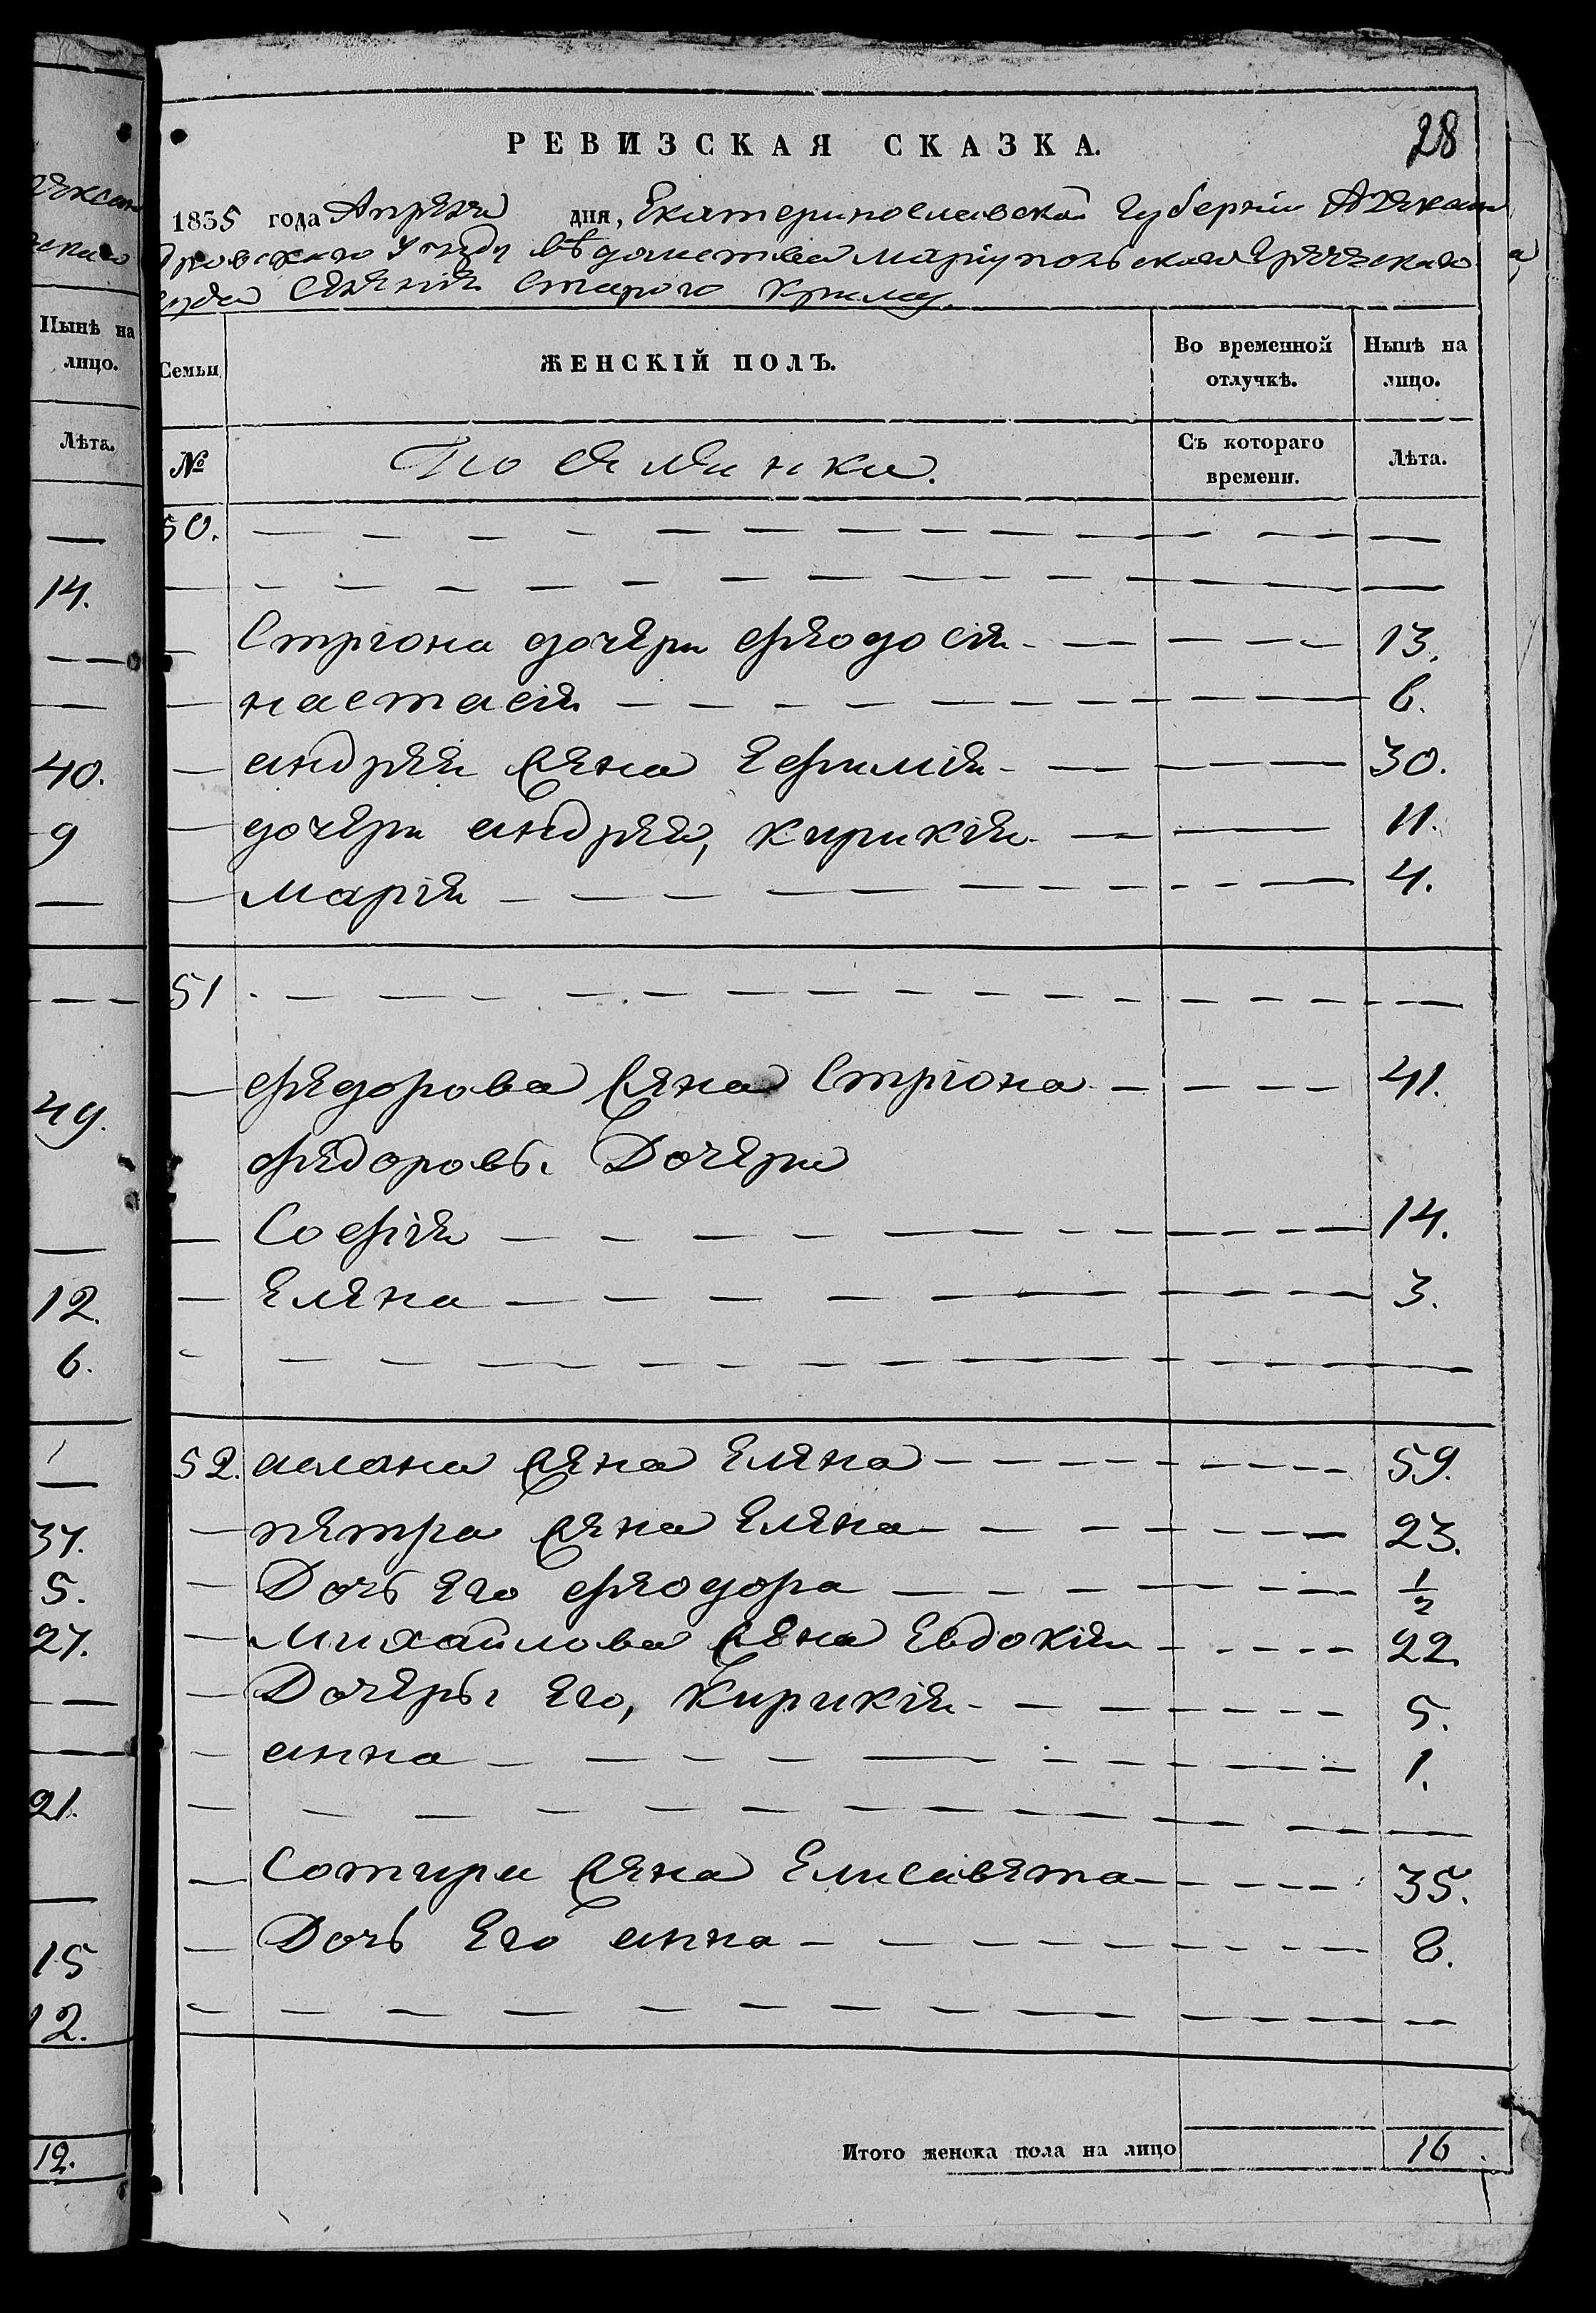 РЕВИЗСКАЯ СКАЗКА.
28
1835 года Апреля дня, Екатеринославской Губернии Алексан
дровского Уезду ведомства мариупольского Греческого
суда Селения Старого Крыма
Семьи
ЖЕНСКІЙ ПОЛЪ.
Во временной отлучкѣ.
Нынѣ на лицо.
№
Поселянки.
Съ котораго времени.
Лѣта.
50.
Стріона дочери феодосія 13.
настасія 6.
андрея жена Ефимія 30.
дочери андрея, кирикія 11.
марія 4.
51
федорова жена Стріона 41.
федоровы Дочери
Софія 14.
Елена 3.
52. аслана жена Елена 59.
петра жена Елена 23.
Дочь Его феодора 1/2
михайлова жена Евдокія 22
Дочеры Его, Кирикія 5.
анна 1.
Сотири жена Елисавета 35.
Дочь Его анна 8.
Итого женска пола на лицо 16
лексан
Нынѣ на лицо.
Лѣта.
14.
40.
9
49.
12.
6.
37.
5.
27.
21.
15
12.
12.